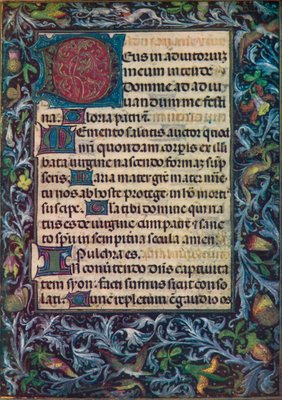 Deus in adiutorium
meum intende
Domine ad adiu
uandum me festi
na: Gloria patri ⁊
Memento salutis auctor quod
nr̄i quondam corporis ex illi
bata uirgine nascendo formā sūp
seris. Maria mater gr̄e mater mise
tu nos ab hoste protege in hor̄ morti
suscipe. Gloria tibi domine qui na
tus es de uirgine cum patre ⁊ sancto
spū in sempiterna secula amen.
Pulchra es.
In conuertendo dn̄s captiuita
tem syon: facti sumus sicut conso
lati. Tunc repletum ē gaudio os